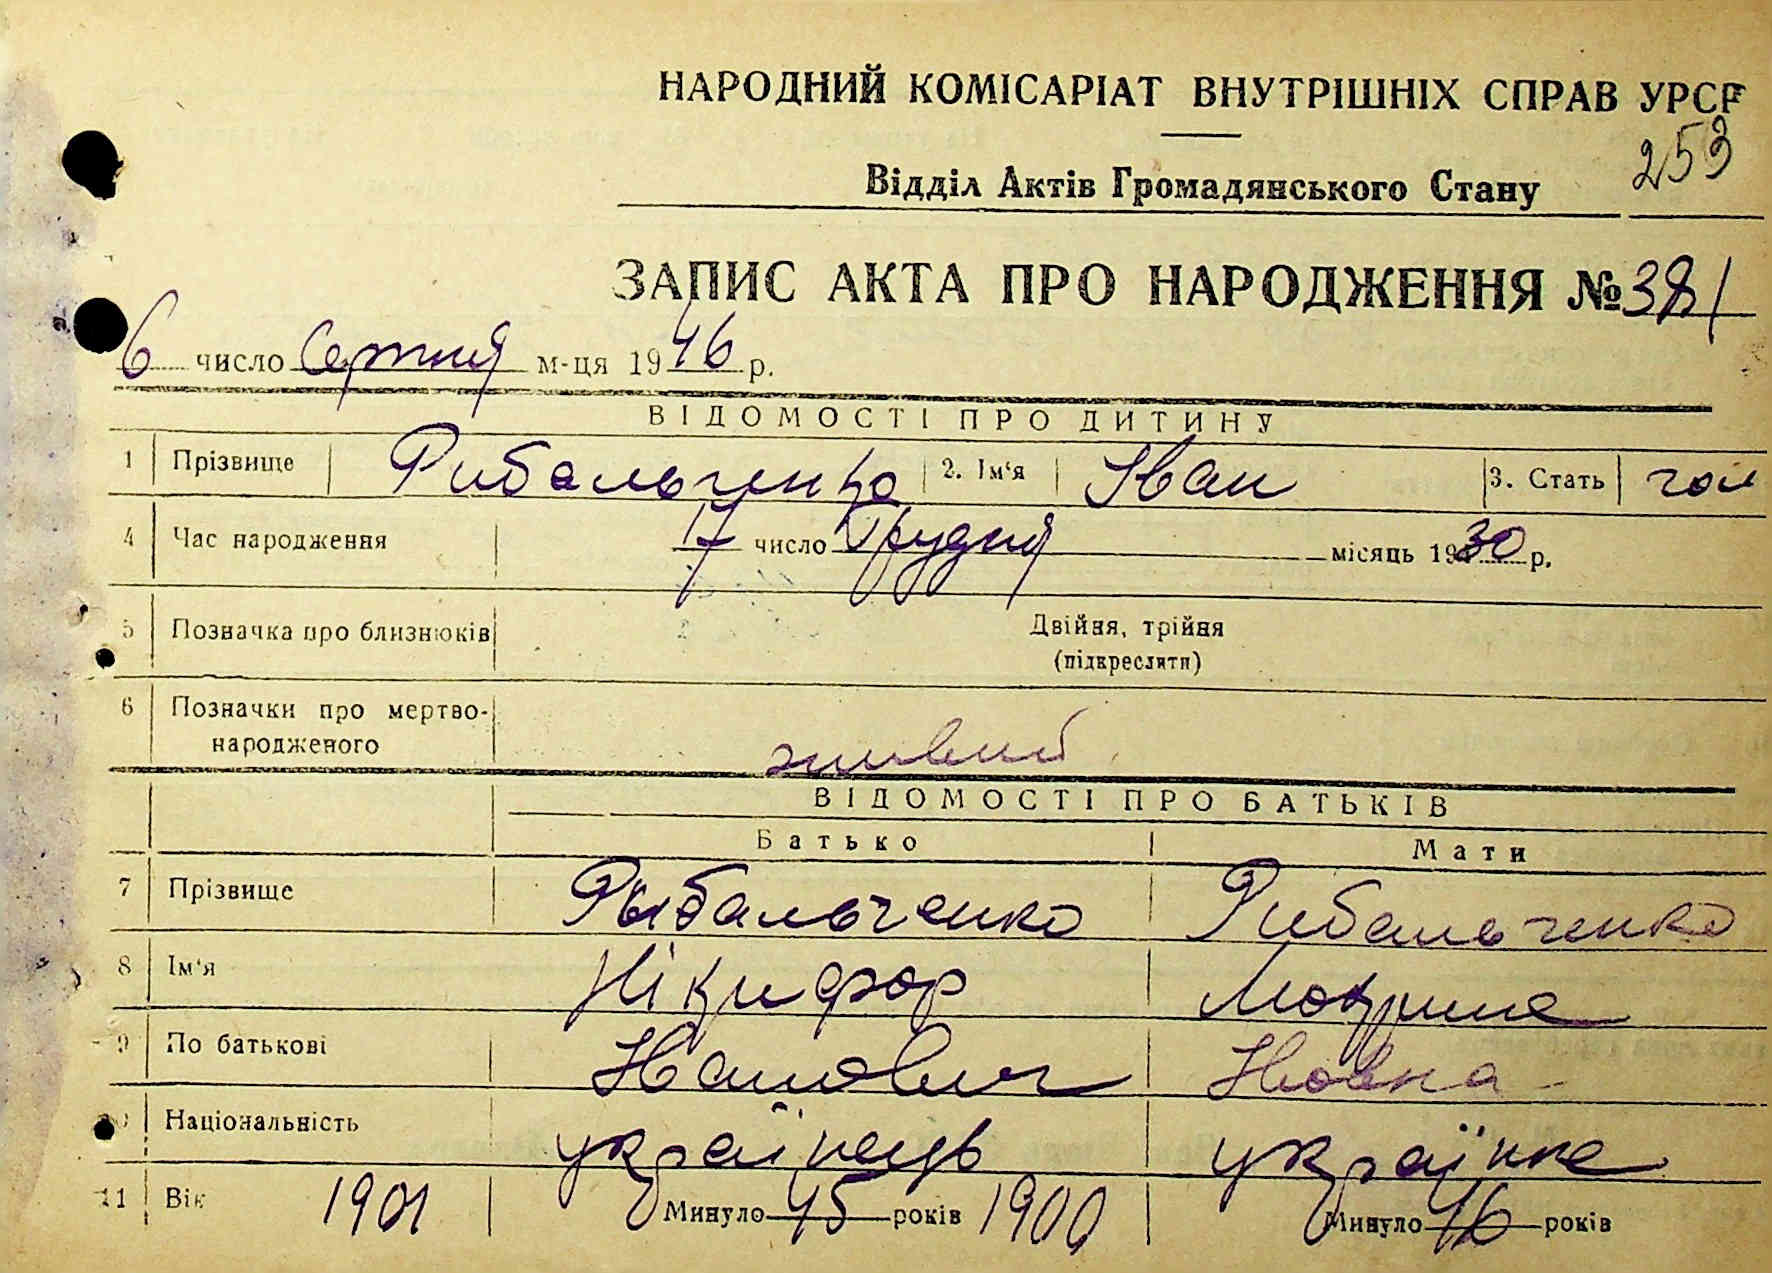 НАРОДНИЙ КОМІСАРІАТ ВНУТРІШНІХ СПРАВ УРСР
253
Відділ Актів Громадянського Стану
ЗАПИС АКТА ПРО НАРОДЖЕННЯ № 381
6 число Серпня м-ця 1946 р.
ВІДОМОСТІ ПРО ДИТИНУ
1 Прізвище Рибальченко 2. Ім'я Іван 3. Стать чол
4 Час народження 17 число Грудня місяць 1930 р.
5 Позначка про близнюків Двійня, трійня
(підкреслити)
6 Позначки про мертво-
народженого живий
ВІДОМОСТІ ПРО БАТЬКІВ
Батько Мати
7 Прізвище Рыбальченко Рибальченко
8 Ім'я Нікифор Мокрина
9 По батькові Іванович
10 Національність українець українка
11 Вік 1901 Минуло 45 років 1900 Минуло 46 років